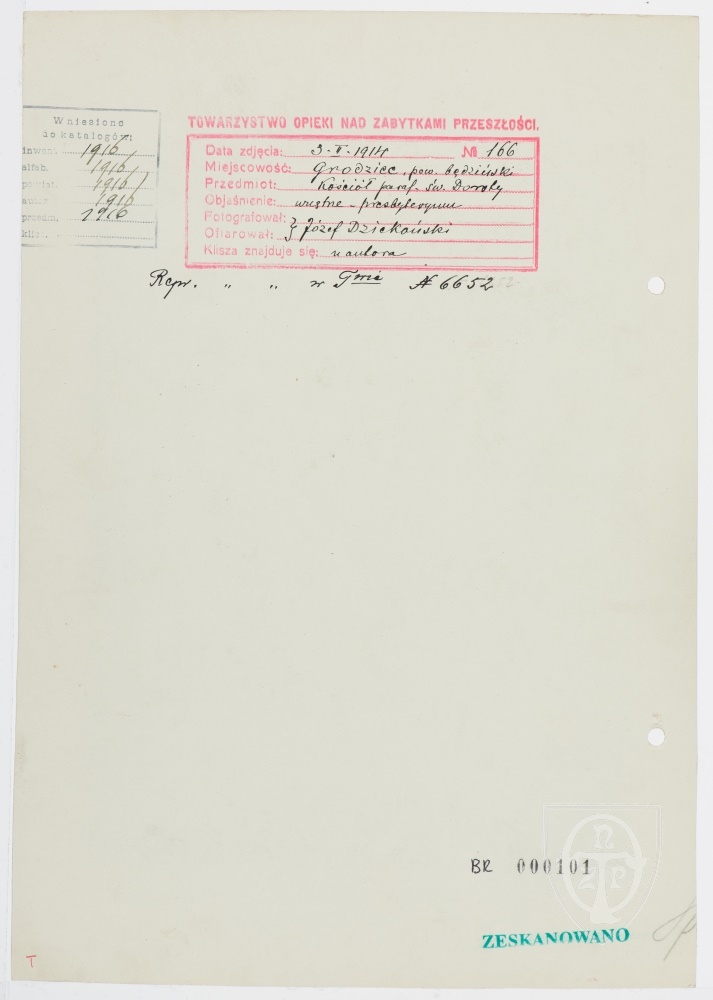 Wniesiono
do katalogów:
inwen. 1916
alfab. 1916
powiat. 1916
autor. 1916
przedm. 1916
klisz.
TOWARZYSTWO OPIEKI NAD ZABYTKAMI PRZESZŁOŚCI.
Data zdjęcia: 3.V.1914 № 166
Miejscowość: Grodziec, pow. będziński
Przedmiot: Kościół paraf. św. Doroty
Objaśnienie: wnętrze - prezbyterium
Fotografował: } Józef Dziekoński
Ofiarował:
Klisza znajduje się: u autora
Repr. " " w T-wie № 6652
BR 000101
ZESKANOWANO
T